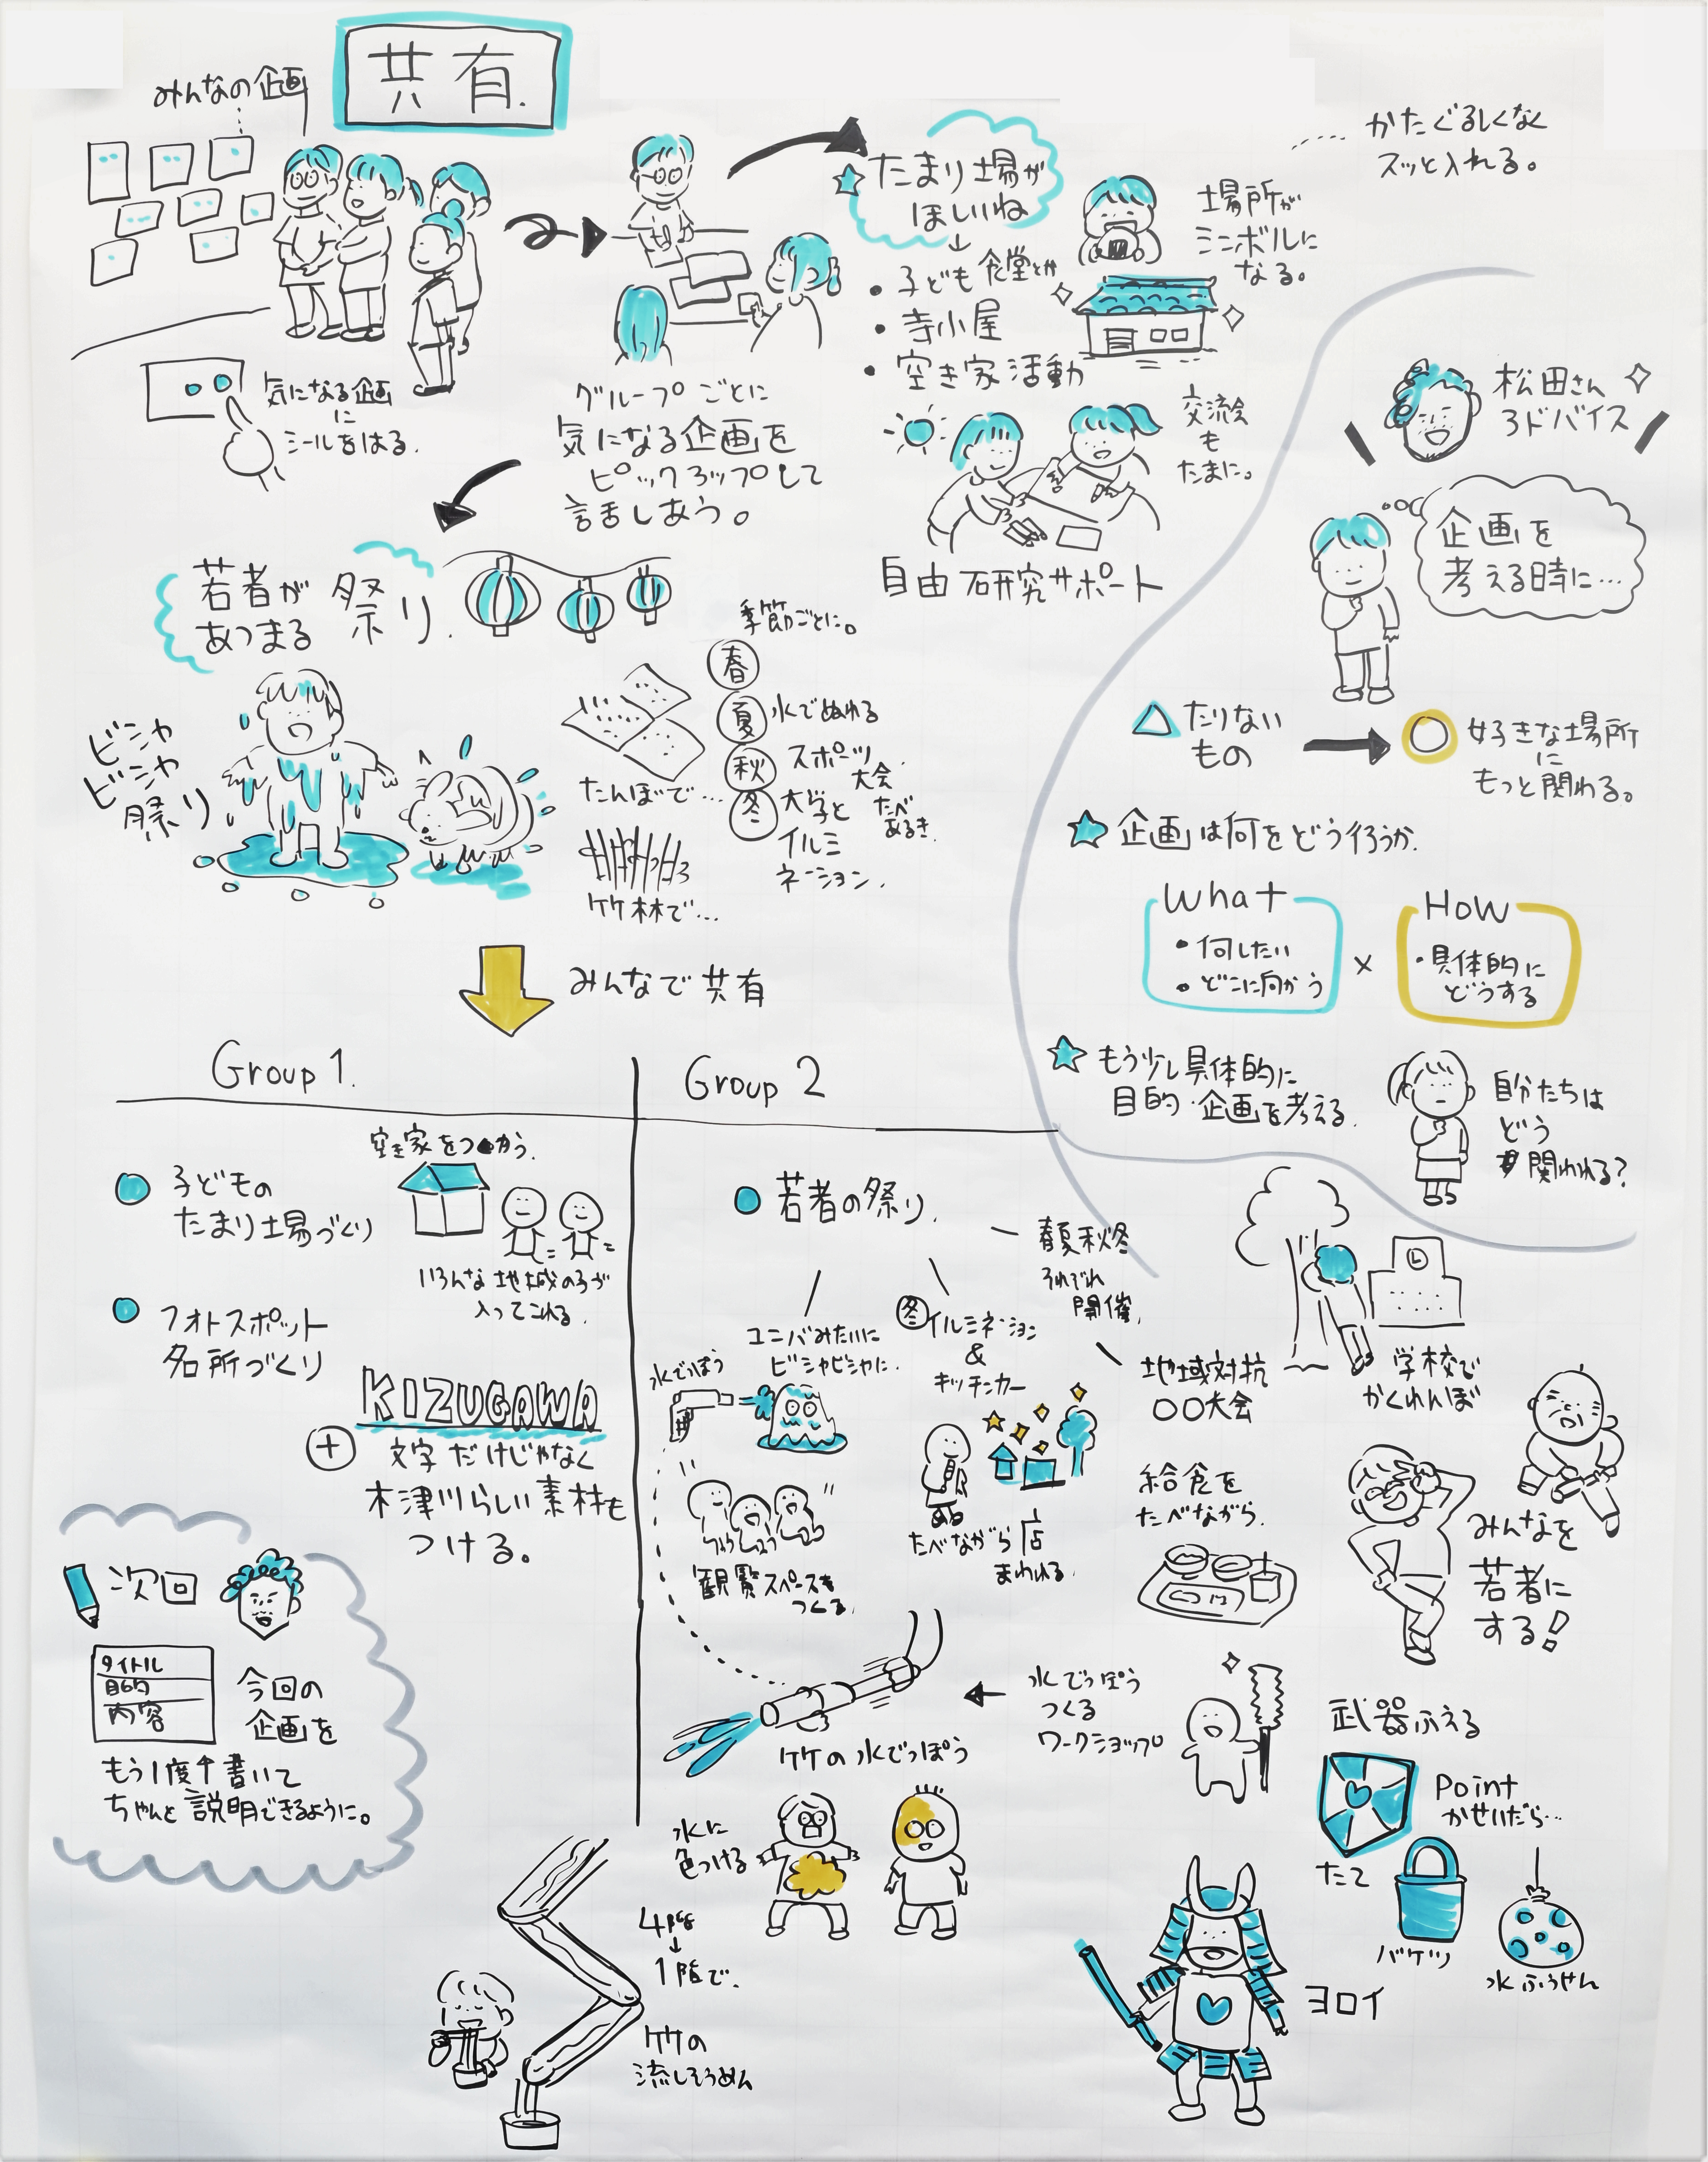 共有.
みんなの企画
気になる企画
に
シールをはる.
グループごとに
気になる企画を
ピックアップして
話しあう。
たまり場が
ほしいね
・子ども食堂とか
・寺小屋
・空き家活動
かたぐるしくなく
スッと入れる。
場所が
シンボルに
なる。
交流会
も
たまに。
自由研究サポート
若者が
あつまる
祭り.
ビシャ
ビシャ
祭り
たんぼで…
竹林で…
季節ごとに。
春
夏 水でぬれる
秋 スポーツ
大会.
冬 大学と
イルミ
ネーション.
たべ
あるき
みんなで共有
松田さん
アドバイス
企画を
考える時に…
たりない
もの
好きな場所
に
もっと関わる。
企画は何をどう行うか.
What
・何したい
・どこに向かう
×
How
・具体的に
どうする
もう少し具体的に
目的・企画を考える.
自分たちは
どう
関われる?
Group 1.
子どもの
たまり場づくり
空き家をつかう.
いろんな地域の子が
入ってこれる.
フォトスポット
名所づくり
KIZUGAWA
+ 文字だけじゃなく
木津川らしい素材も
つける。
次回
タイトル
目的
内容
今回の
企画を
もう1度書いて
ちゃんと説明できるように。
Group 2
若者の祭り.
春夏秋冬
それぞれ
開催.
ユニバみたいに
ビシャビシャに.
水でっぽう
観覧スペースも
つくる.
冬 イルミネーション
&
キッチンカー
たべながら店
まわれる.
地域対抗
〇〇大会
学校で
かくれんぼ
給食を
たべながら.
みんなを
若者に
する!
竹の水でっぽう
水でっぽう
つくる
ワークショップ
水に
色つける
4階
↓
1階で.
竹の
流しそうめん
武器ふえる
Point
かせいだら…
たて
バケツ
水ふうせん
ヨロイ